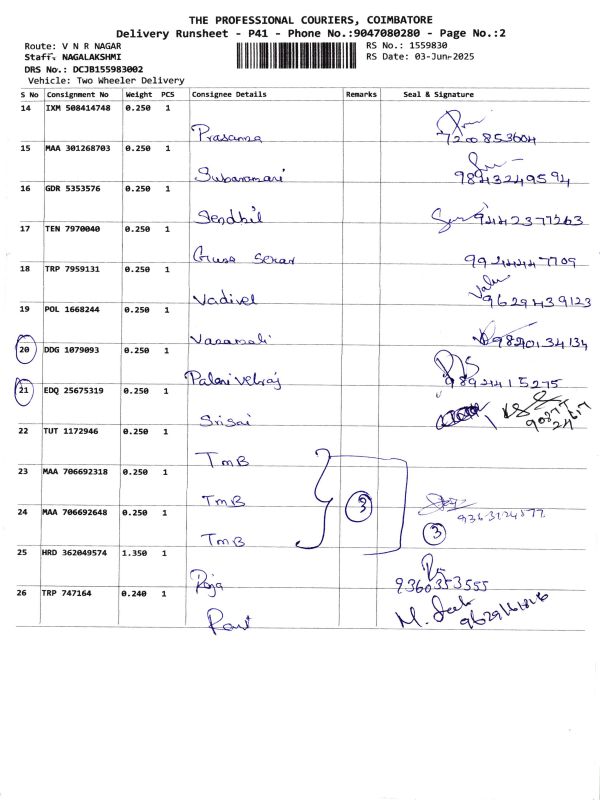 THE PROFESSIONAL COURIERS, COIMBATORE
Delivery Runsheet - P41 - Phone No.:9047080280 - Page No.:2
Route: V N R NAGAR
RS No.: 1559830
Staff: NAGALAKSHMI
RS Date: 03-Jun-2025
DRS No.: DCJB155983002
Vehicle: Two Wheeler Delivery
S No Consignment No Weight PCS Consignee Details Remarks Seal & Signature
14 IXM 508414748 0.250 1
Prasanna 7200853604
15 MAA 301268703 0.250 1
Subaramani 9843249594
16 GDR 5353576 0.250 1
Sendhil 9442377263
17 TEN 7970040 0.250 1
Guna Sekar 9944447709
18 TRP 7959131 0.250 1
Vadivel 9629439123
19 POL 1668244 0.250 1
Vasamali 9820134134
20 DDG 1079093 0.250 1
Palanivelraj 9892415275
21 EDQ 25675319 0.250 1
Srisai
22 TUT 1172946 0.250 1
TMB
23 MAA 706692318 0.250 1
TMB 3
24 MAA 706692648 0.250 1
TMB 3
25 HRD 362049574 1.350 1
Roja 9360353555
26 TRP 747164 0.240 1